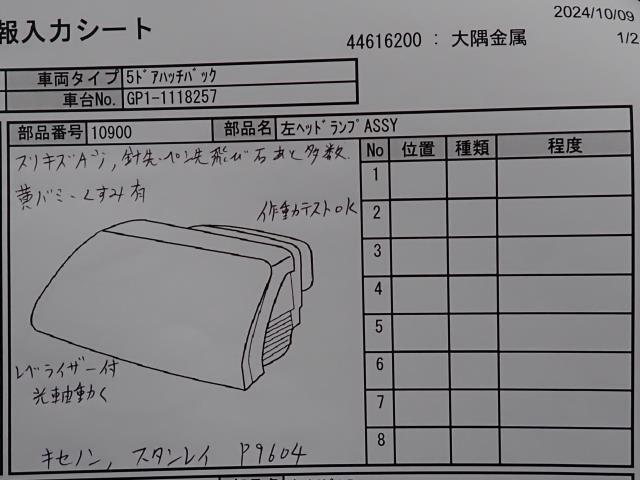 2024/10/09
報入力シート
44616200 : 大隅金属
1/2
車両タイプ 5ﾄﾞｱﾊｯﾁﾊﾞｯｸ
車台No. GP1-1118257
部品番号 10900 部品名 左ﾍｯﾄﾞﾗﾝﾌﾟASSY
スリキズAーン, 針先・ペン先飛び石あと多数.
黄バミ・くすみ有
作動テストok
No 位置 種類 程度
1
2
3
4
5
6
7
8
レベライザー付
光軸動く
キセノン, スタンレイ P9604